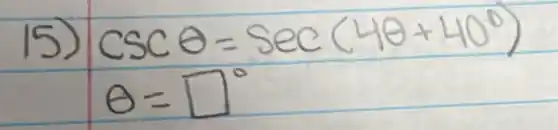 15) csc θ = sec (4θ + 40⁰)
θ = □°